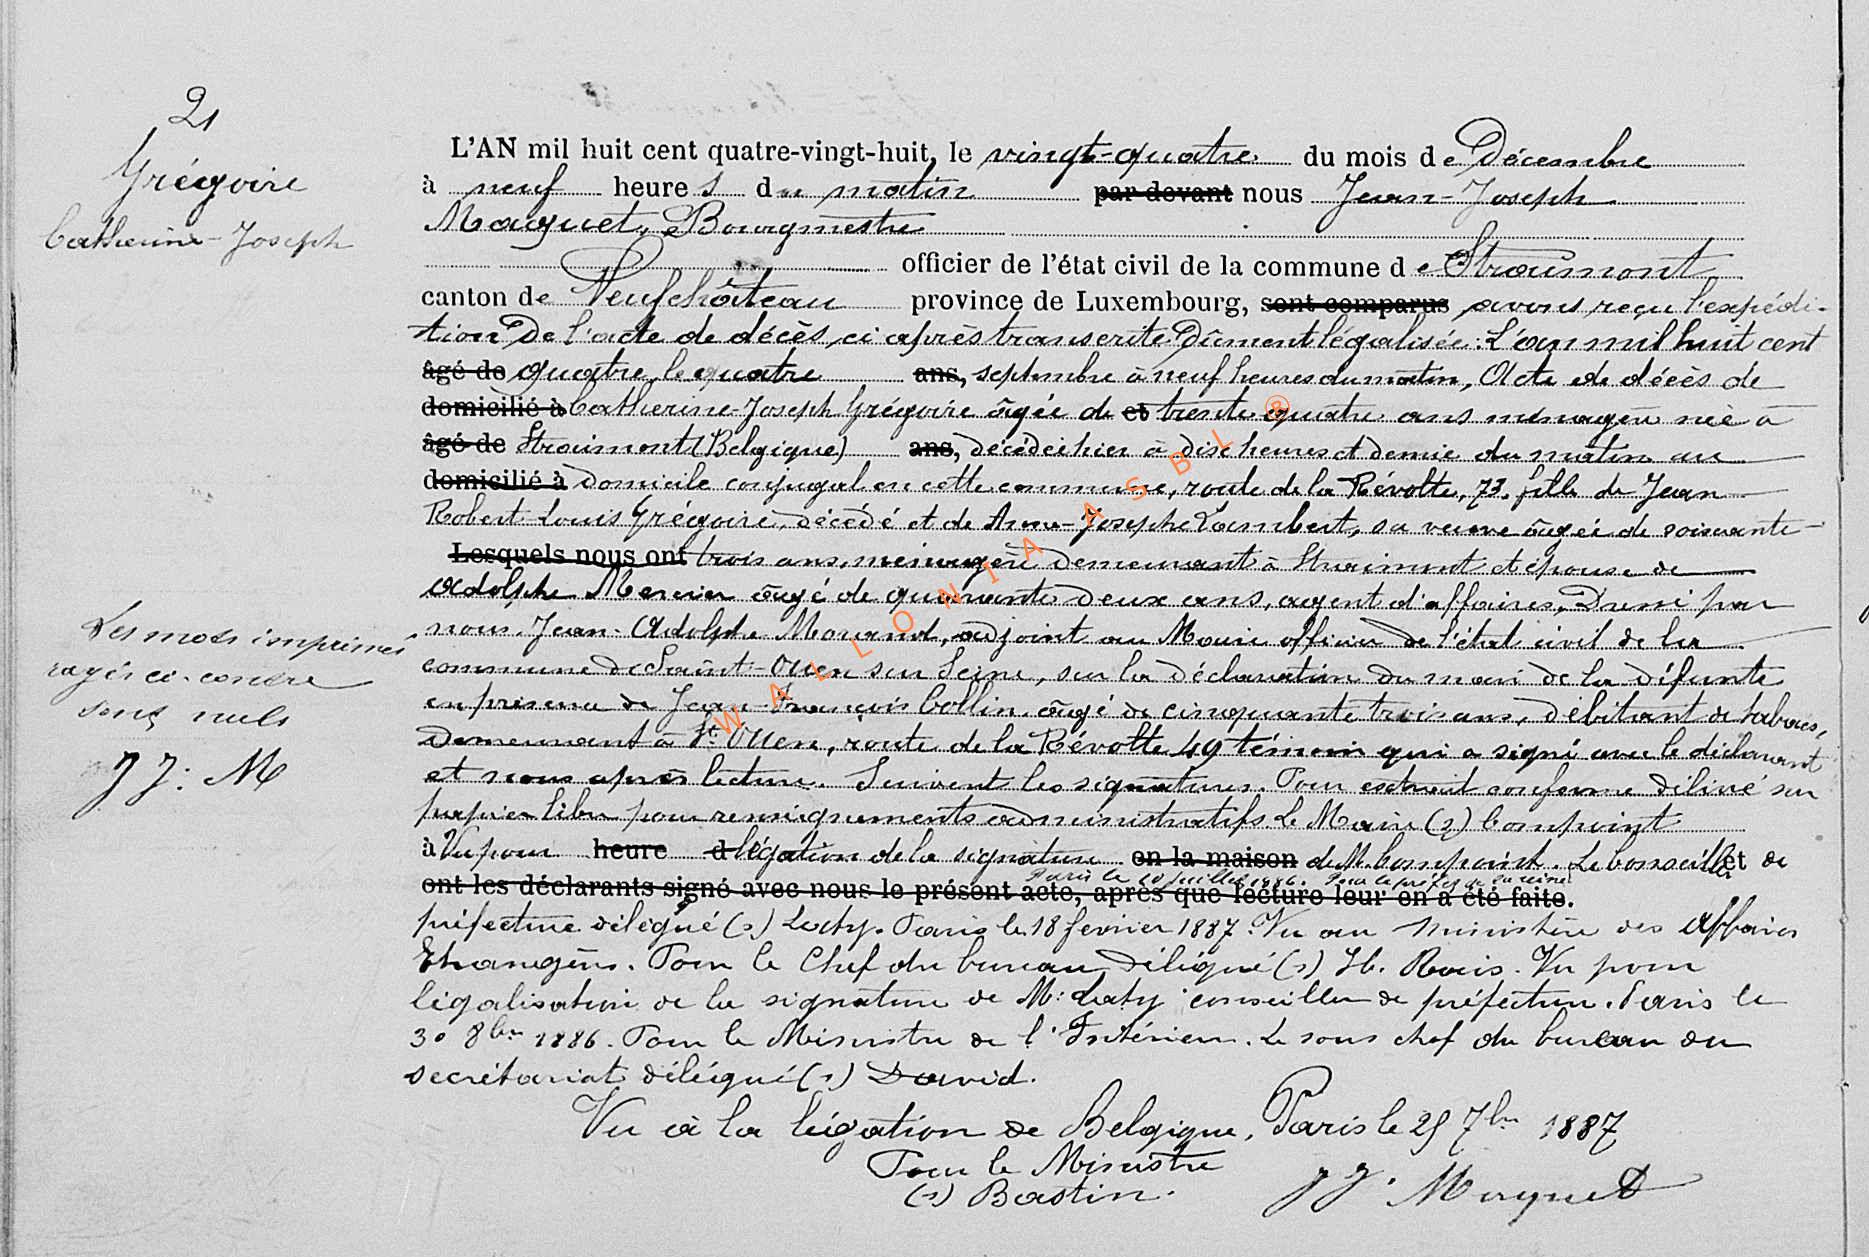 21
Grégoire
Catherine-Joseph
L'AN mil huit cent quatre-vingt-huit, le vingt-quatre du mois de Décembre
à neuf heures du matin par devant nous Jean-Joseph
Maquet, Bourgmestre
officier de l'état civil de la commune de Straimont
canton de Neufchâteau province de Luxembourg, sont comparus avons reçu l'expédi-
tion de l'acte de décès ci après transcrite Dûment légalisée: L'an mil huit cent
âgé de quatre, le quatre ans, septembre à neuf heures du matin, Acte de décès de
domicilié à Catherine-Joseph Grégoire âgée de et trente quatre ans ménagère née à
âgé de Straimont (Belgique) ans, décédée hier à dix heures et demie du matin au
domicilié à Domicile conjugal en cette commune, route de la Révolte, 73, fille de Jean
Robert Louis Grégoire, décédé et de Anne-Joseph Lambert, sa veuve âgée de soixante-
Lesquels nous ont trois ans, ménagère demeurant à Straimont et épouse de
Adolphe Mercier âgé de quarante deux ans, agent d'affaires. Dressé par
nous, Jean-Adolphe Morand, adjoint au Maire officier de l'état civil de la
commune de Saint-Ouen sur Seine, sur la déclaration du mari de la défunte
en présence de Jean-François Collin âgé de cinquante trois ans, débitant de tabacs,
Demeurant à St Ouen, route de la Révolte 49 témoin qui a signé avec le déclarant
et nous après lecture. Suivent les signatures. Pour extrait conforme délivré sur
papier libre pour renseignements administratifs. Le Maire (s) Compoint
à Vu pour heure d légation de la signature en la maison de M. Compoint. Le Conseiller et de
Paris le 10 Juillet 1886. Pour le préfet de la seine
ont les déclarants signé avec nous le présent acte, après que lecture leur en a été faite.
préfecture délégué (s) Laty. Paris le 18 février 1887. Vu au ministère des Affaires
Etrangères. Pour le Chef du bureau Délégué (s) H. Rouis. Vu pour
légalisation de la signature de M: Laty conseiller de préfecture. Paris le
30 8bre 1886. Pour le Ministre de l'Intérieur. Le sous chef du bureau du
secrétariat délégué (s) David.
Vu à la légation de Belgique, Paris le 25 7bre 1887
Pour le Ministre
(s) Bastin.
J J. Maquet
Les mots imprimés
rayés ci-contre
sont nuls
J J. M
WALLONIA ASBL ®